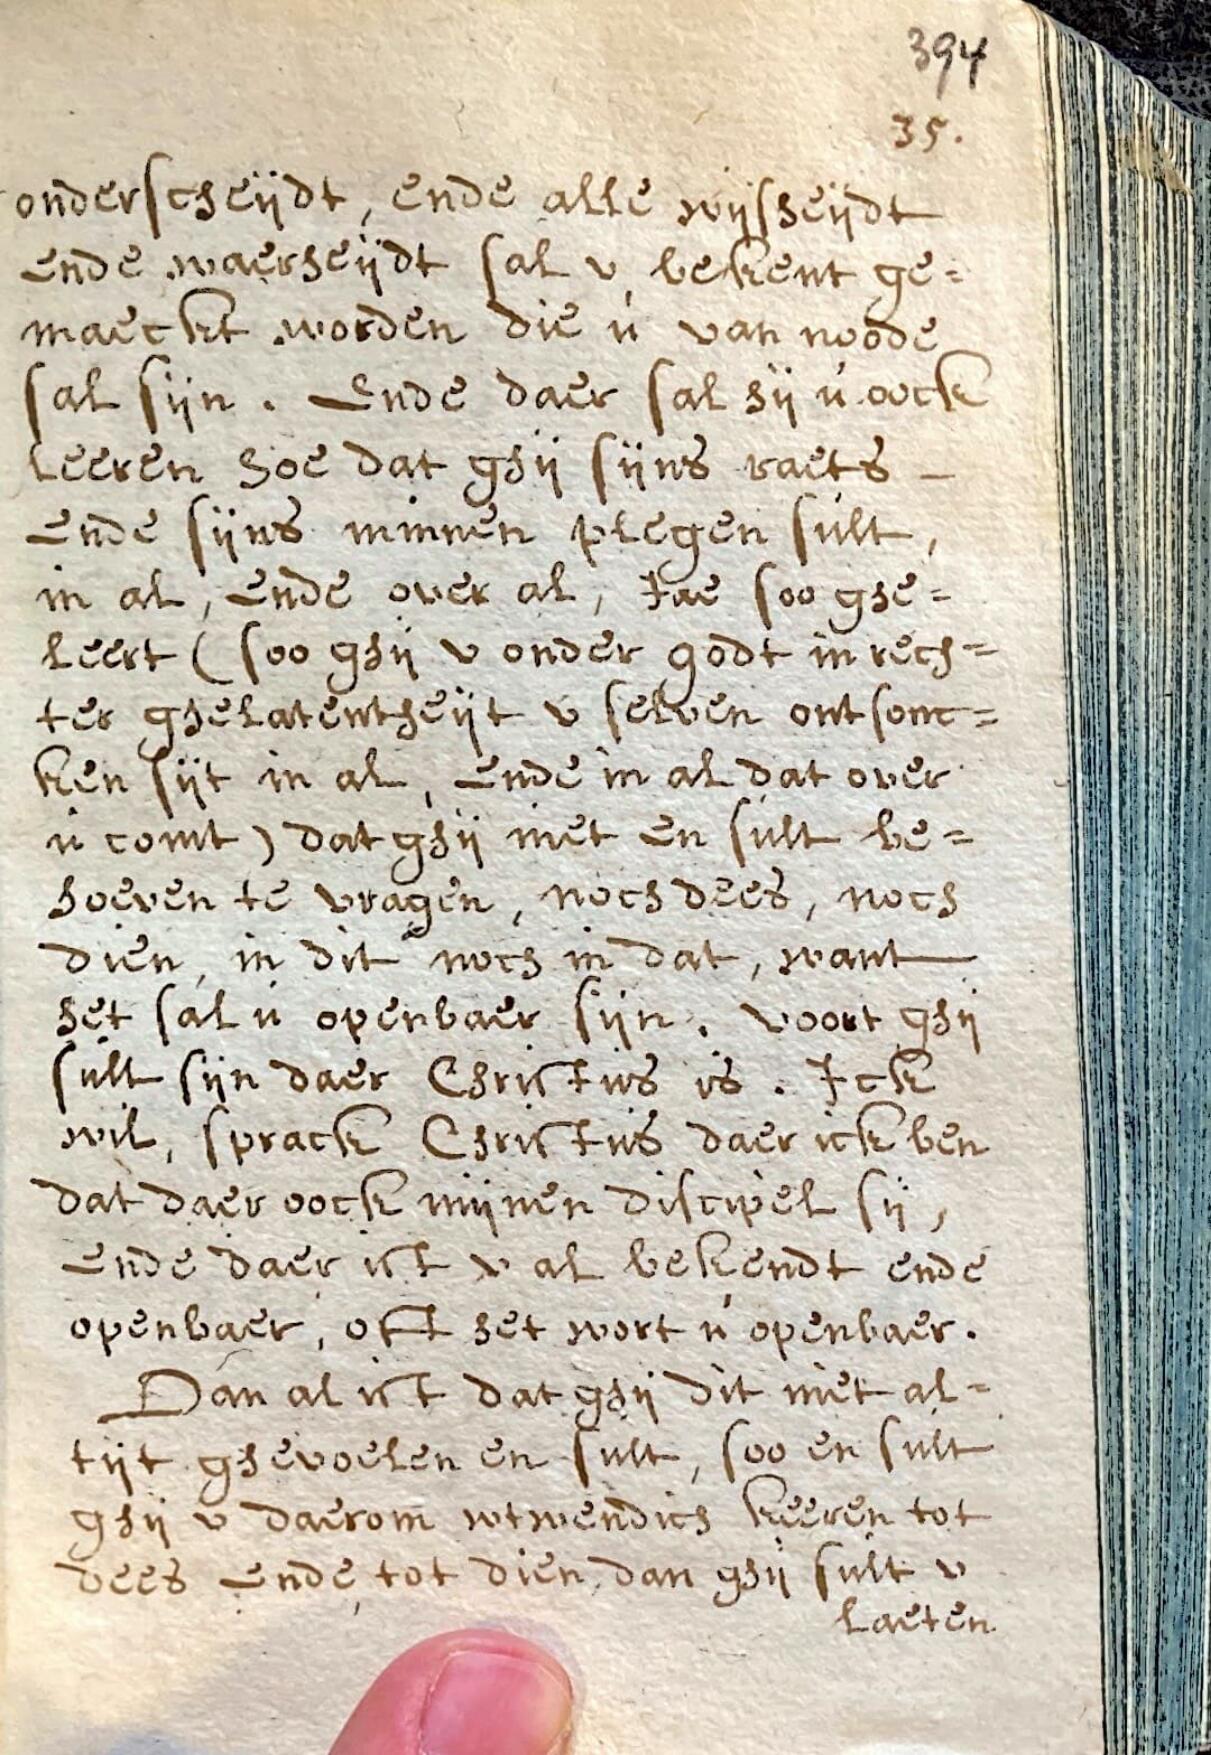 394
35.
onderscheijdt, ende alle wijsheijdt
ende waerheijdt sal v bekent ge=
maeckt worden die ú van noode
sal sijn. Ende daer sal hij ú oock
leeren hoe dat ghij sijns raets –
ende sijns minnen plegen súlt,
in al, ende over al, Jae soo ghe=
leert (soo ghij v onder godt in rech=
ter ghelatentheijt v selven ontsonc=
ken sijt in al, ende in al dat over
ú comt) dat ghij niet en súlt be=
hoeven te vragen, noch dees, noch
dien, in dit noch in dat, want
het sal ú openbaer sijn. voort ghij
súlt sijn daer Christús is. Jck
wil, sprack Christús daer ick ben
dat daer oock mijnen discipel sij,
ende daer ist v al bekendt ende
openbaer, oft het wort ú openbaer.
Dan al ist dat ghij dit niet al=
tijt ghevoelen en súlt, soo en súlt
ghij v daerom wtwendich keeren tot
dees ende tot dien, dan ghij súlt v
laeten